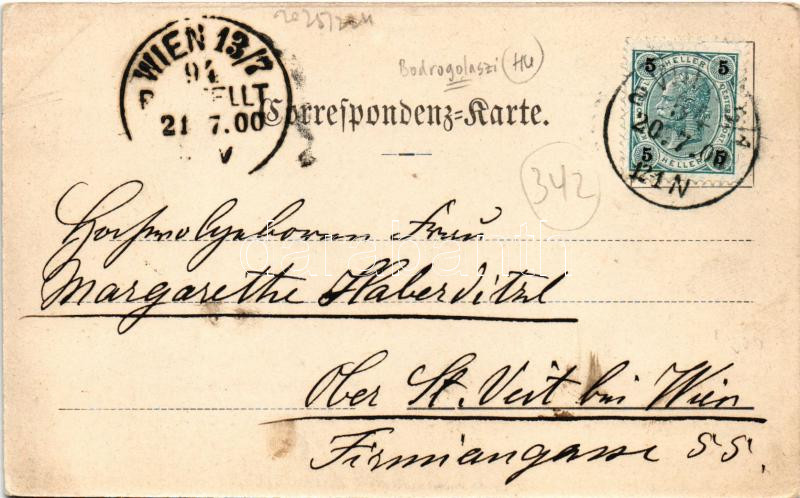 WIEN 13/7
BESTELLT
21 7.00
Bodrogolaszi HU
Correspondenz=Karte.
5 HELLER 5
5 HELLER 5
20.7.00
12-1N
342
Hochwolgeboren Frau
Margarethe Haberditzl
Ober St. Veit bei Wien
Firmiangasse 55.
darabanth